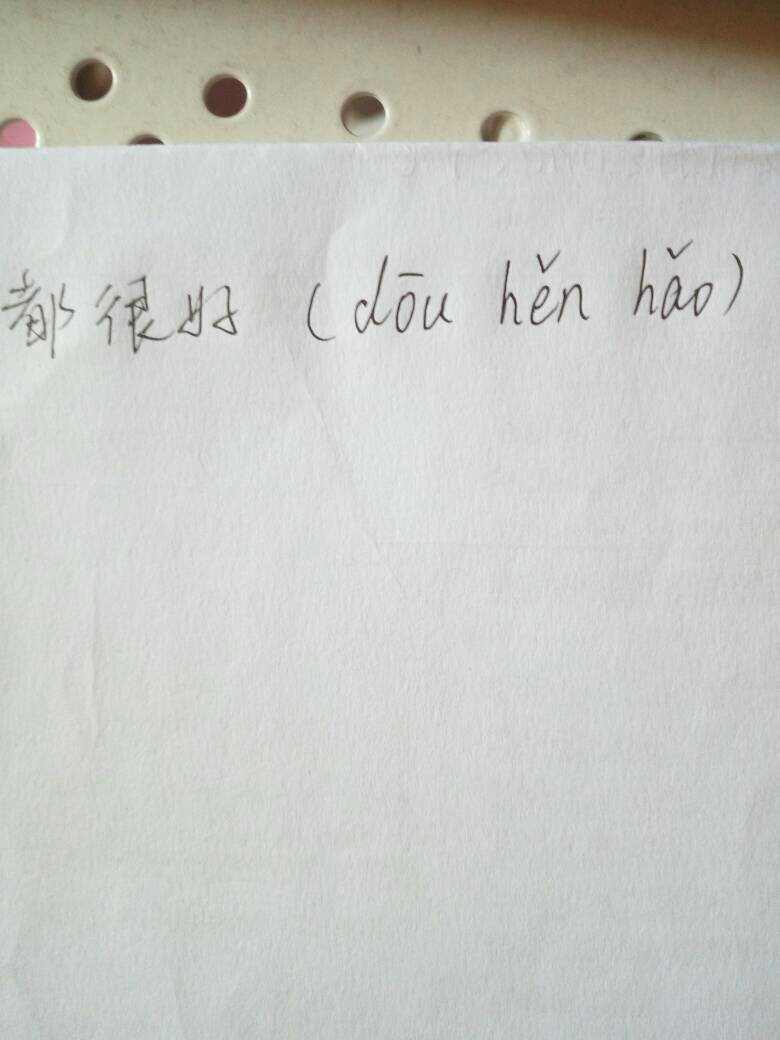 都很好 (dōu hěn hǎo)